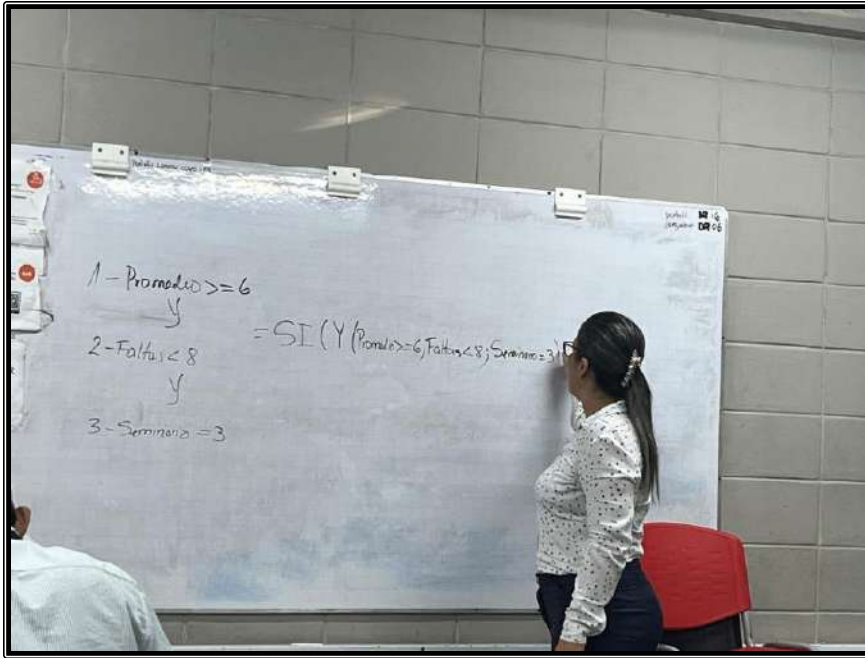 1 - Promedio >= 6
y
2 - Faltas < 8
y
3 - Seminario = 3
= SI ( Y ( Promedio >= 6; Faltas < 8; Seminario = 3 )